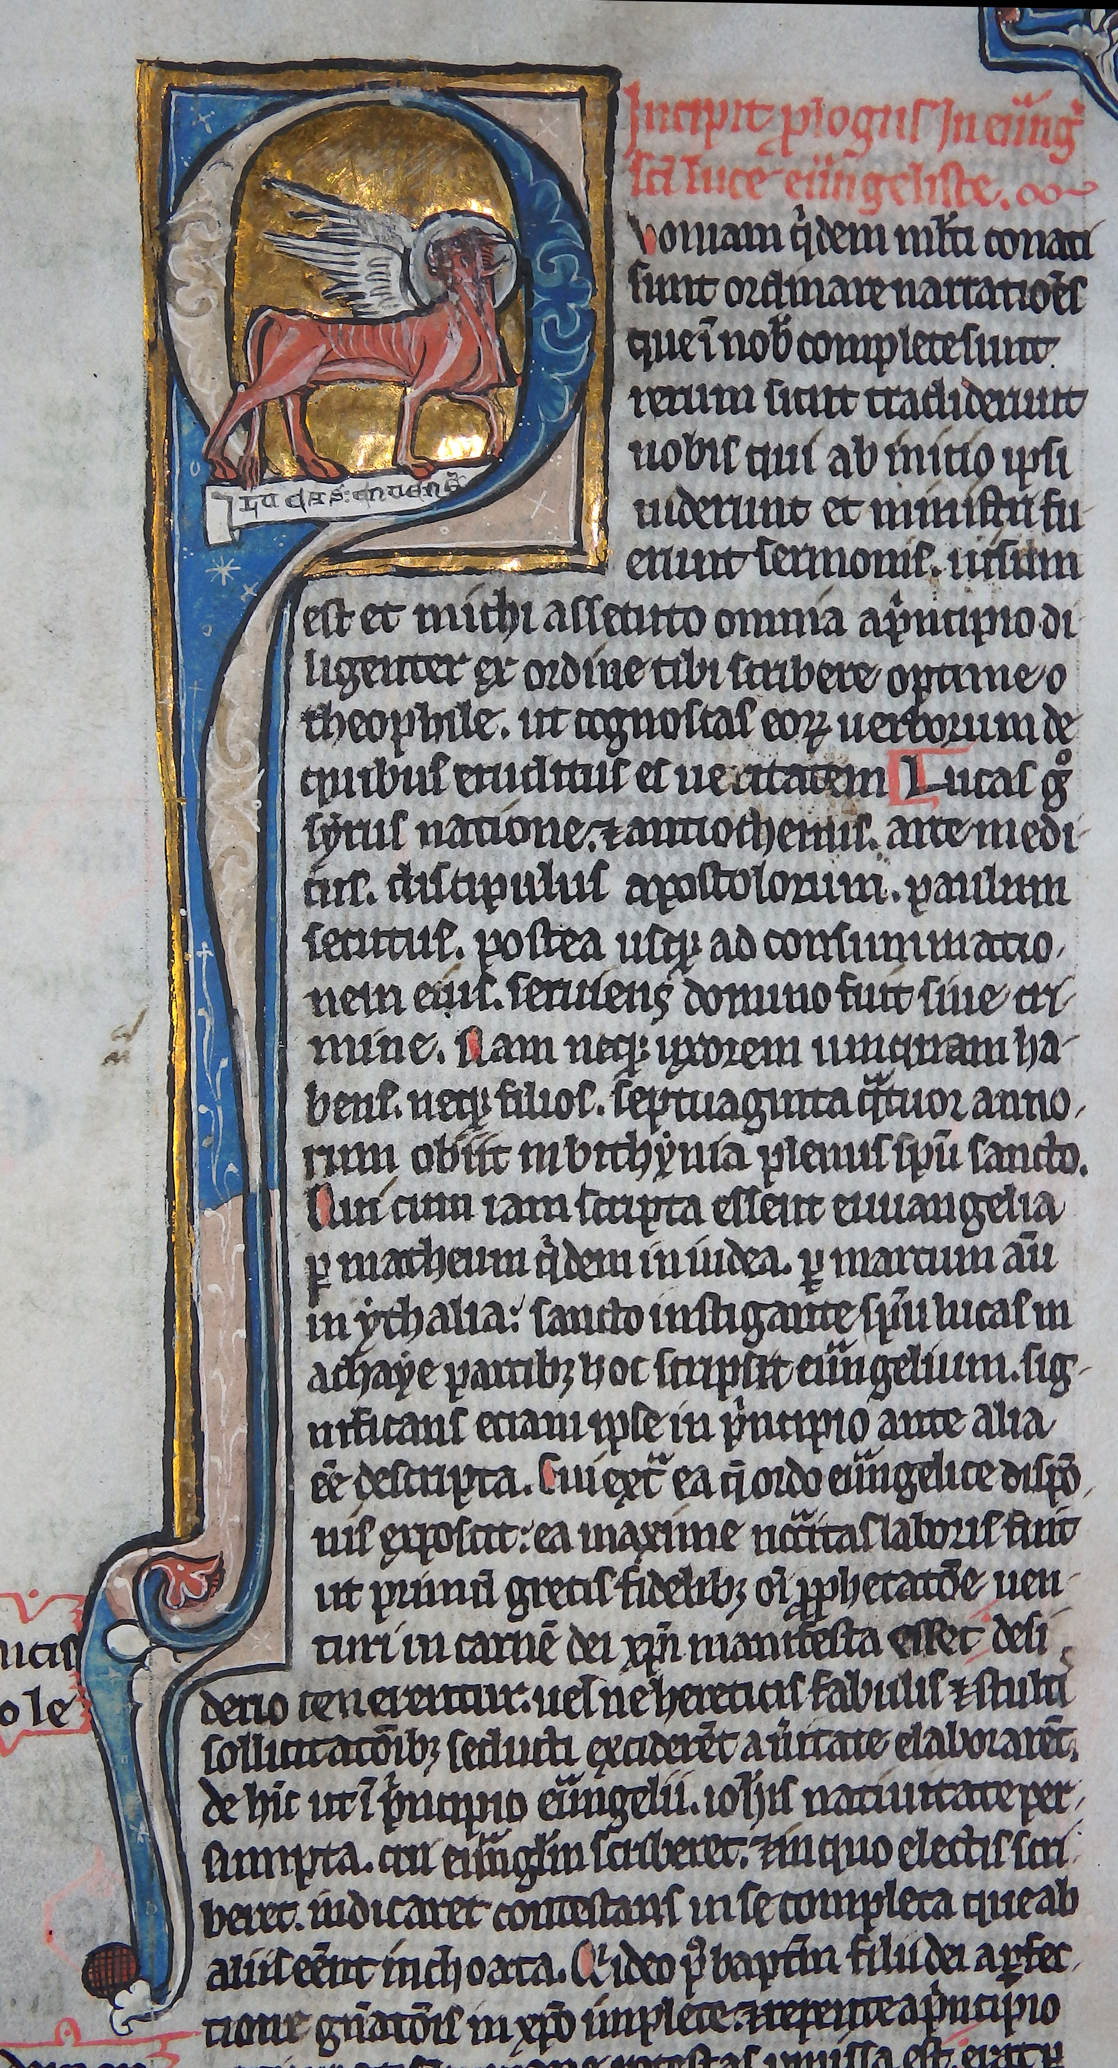 Incipit p̲logus In eu̅ngᷓ
sc̅i luce eu̅ngeliste.
Quoniam q̇dem ml̅ti conati
sunt ordinare narratioēs
que ī nob̅ complete sunt
rerum sicut tradiderunt
nobis qui ab initio ipsi
uiderunt et ministri fu
erunt sermonis. uisum
est et michi assecuto omnia ap̍ncipio di
ligenter ex ordine tibi scribere optime o
theophile. ut cognoscas eoꝝ uerborum de
quibus eruditus es ueritatem Lucas gͦ
syrus natione. ⁊ antiochenus. arte medi
cus. discipulus apostolorum. paulum
secutus. postea usqꝫ ad consummatio
nem eius. seruiens domino fuit sine cri
mine. Nam neqꝫ uxorem umquam ha
bens. neqꝫ filios. septuaginta qᷓtuor anno
rum obiit in bithẏnia plenus sp̅u sancto.
Qui cum iam scripta essent euuangelia
ꝑ matheum q̇dem in iudea. ꝑ marcum au̅
in ẏthalia: sancto instigante sp̅u lucas in
achaẏe partibꝫ hoc scripsit eu̅ngelium. sig
nificans eciam ipse in p̍ncipio ante alia
ee̅ descripta. Cui extᷓ ea q̅ ordo eu̅ngelice disp̅o
nis exposcit: ea maxime nc̅citas laboris fuit
ut primu̅ grecis fidelibꝫ oi̅ ꝓphetato̅e uen
turi in carne̅ dei xp̅i manifesta esset
ucis
ole
derio tenerentur. uel ne hereticis fabulis ⁊ stulti
sollicitato̅ibꝫ seducti excidere̅t a u̍itate elaborare̅t.
de hi̅c ut ī p̍ncipio eu̅ngelii. ioh̅is natiuitate per
sumpta. cui eu̅ngliu̅ scriberet. ⁊ in quo electus scri
beret. indicaret contestans in se completa que ab
aliis ee̅nt inchoata. Cui ideo pꝰ baptm̅ filii dei a ꝑfec
tione gn̅ato̅is in xp̅o implete. ⁊ repente a p̍ncipio